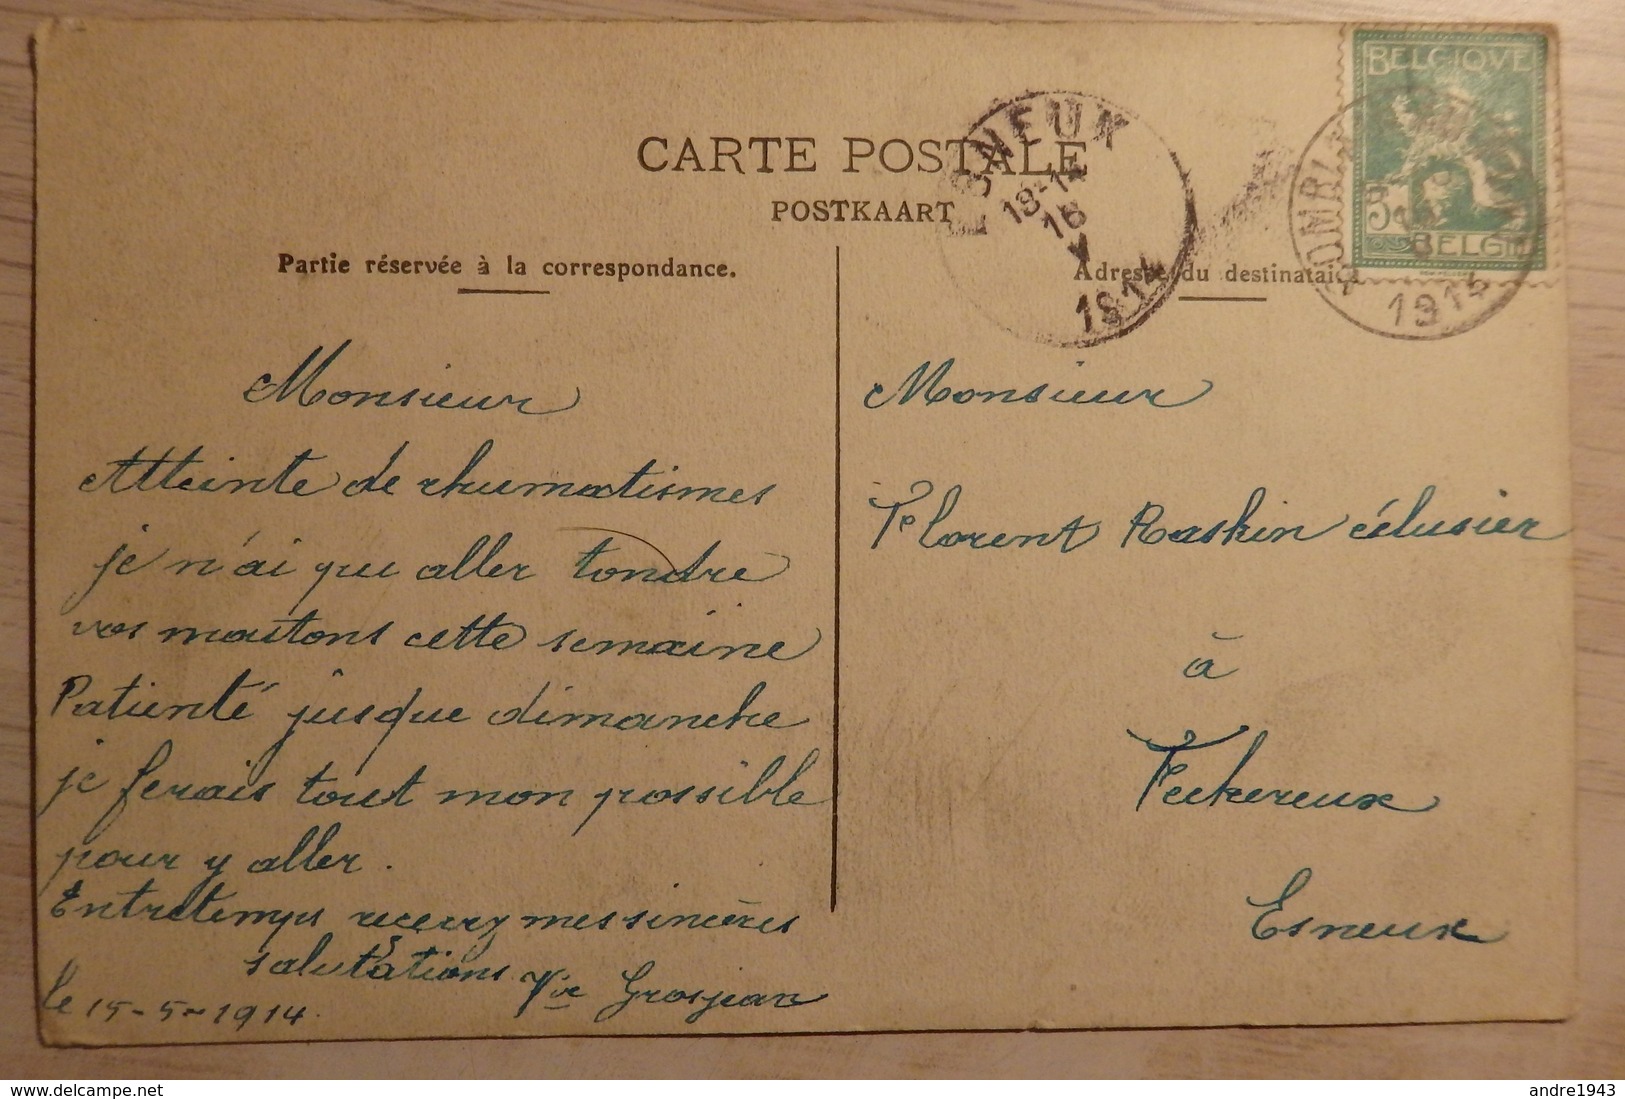 CARTE POSTALE
POSTKAART
Partie réservée à la correspondance.
Monsieur
Atteinte de rhumatismes
je n'ai pu aller tondre
vos moutons cette semaine
Patienté jusque dimanche
je ferais tout mon possible
pour y aller.
Entretemps recevez mes sincères
salutations Vve Grosjean
le 15-5-1914.
Adresse du destinataire
Monsieur
Florent Raskin célusier
à
Feckereux
Esneux
ESNEUX
18-19
16
V
1914
BELGIQUE
5
BELGIË
1914
delcampe.net
andre1943